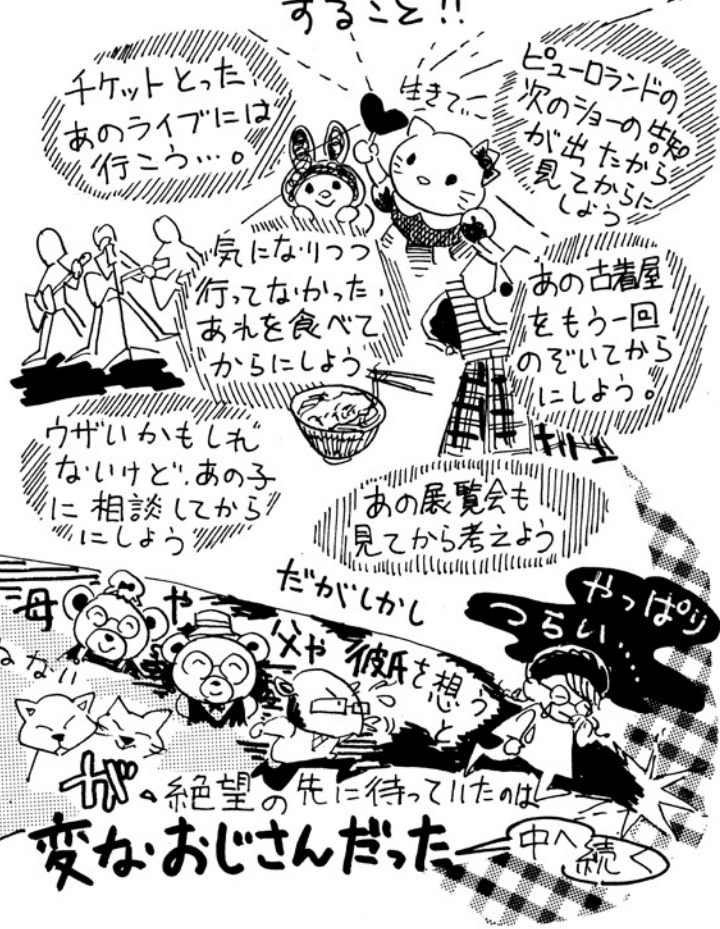 すること!!
チケットとった、
あのライブには
行こう…。
生きて…
ピューロランドの
次のショーの告知
が出たから
見てからに
しよう
気になりつつ
行ってなかった、
あれを食べて
からにしよう
あの古着屋
をもう一回
のぞいてから
にしよう。
ウザいかもしれ
ないけど、あの子
に相談してから
にしよう
あの展覧会も
見てから考えよう
だがしかし
母や
父や彼氏を想う
と
やっぱり
つらい…
が、絶望の先に待っていたのは
変なおじさんだった
中へ続く